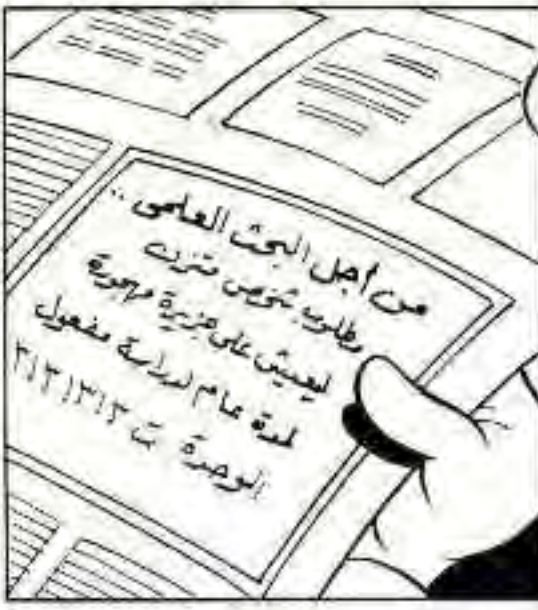 من أجل البحث العلمى ..
مطلوب شخص متزن
ليعيش على جزيرة مهجورة
لمدة عام لدراسة مفعول
الوحدة ت ٣١٣١٣١٣